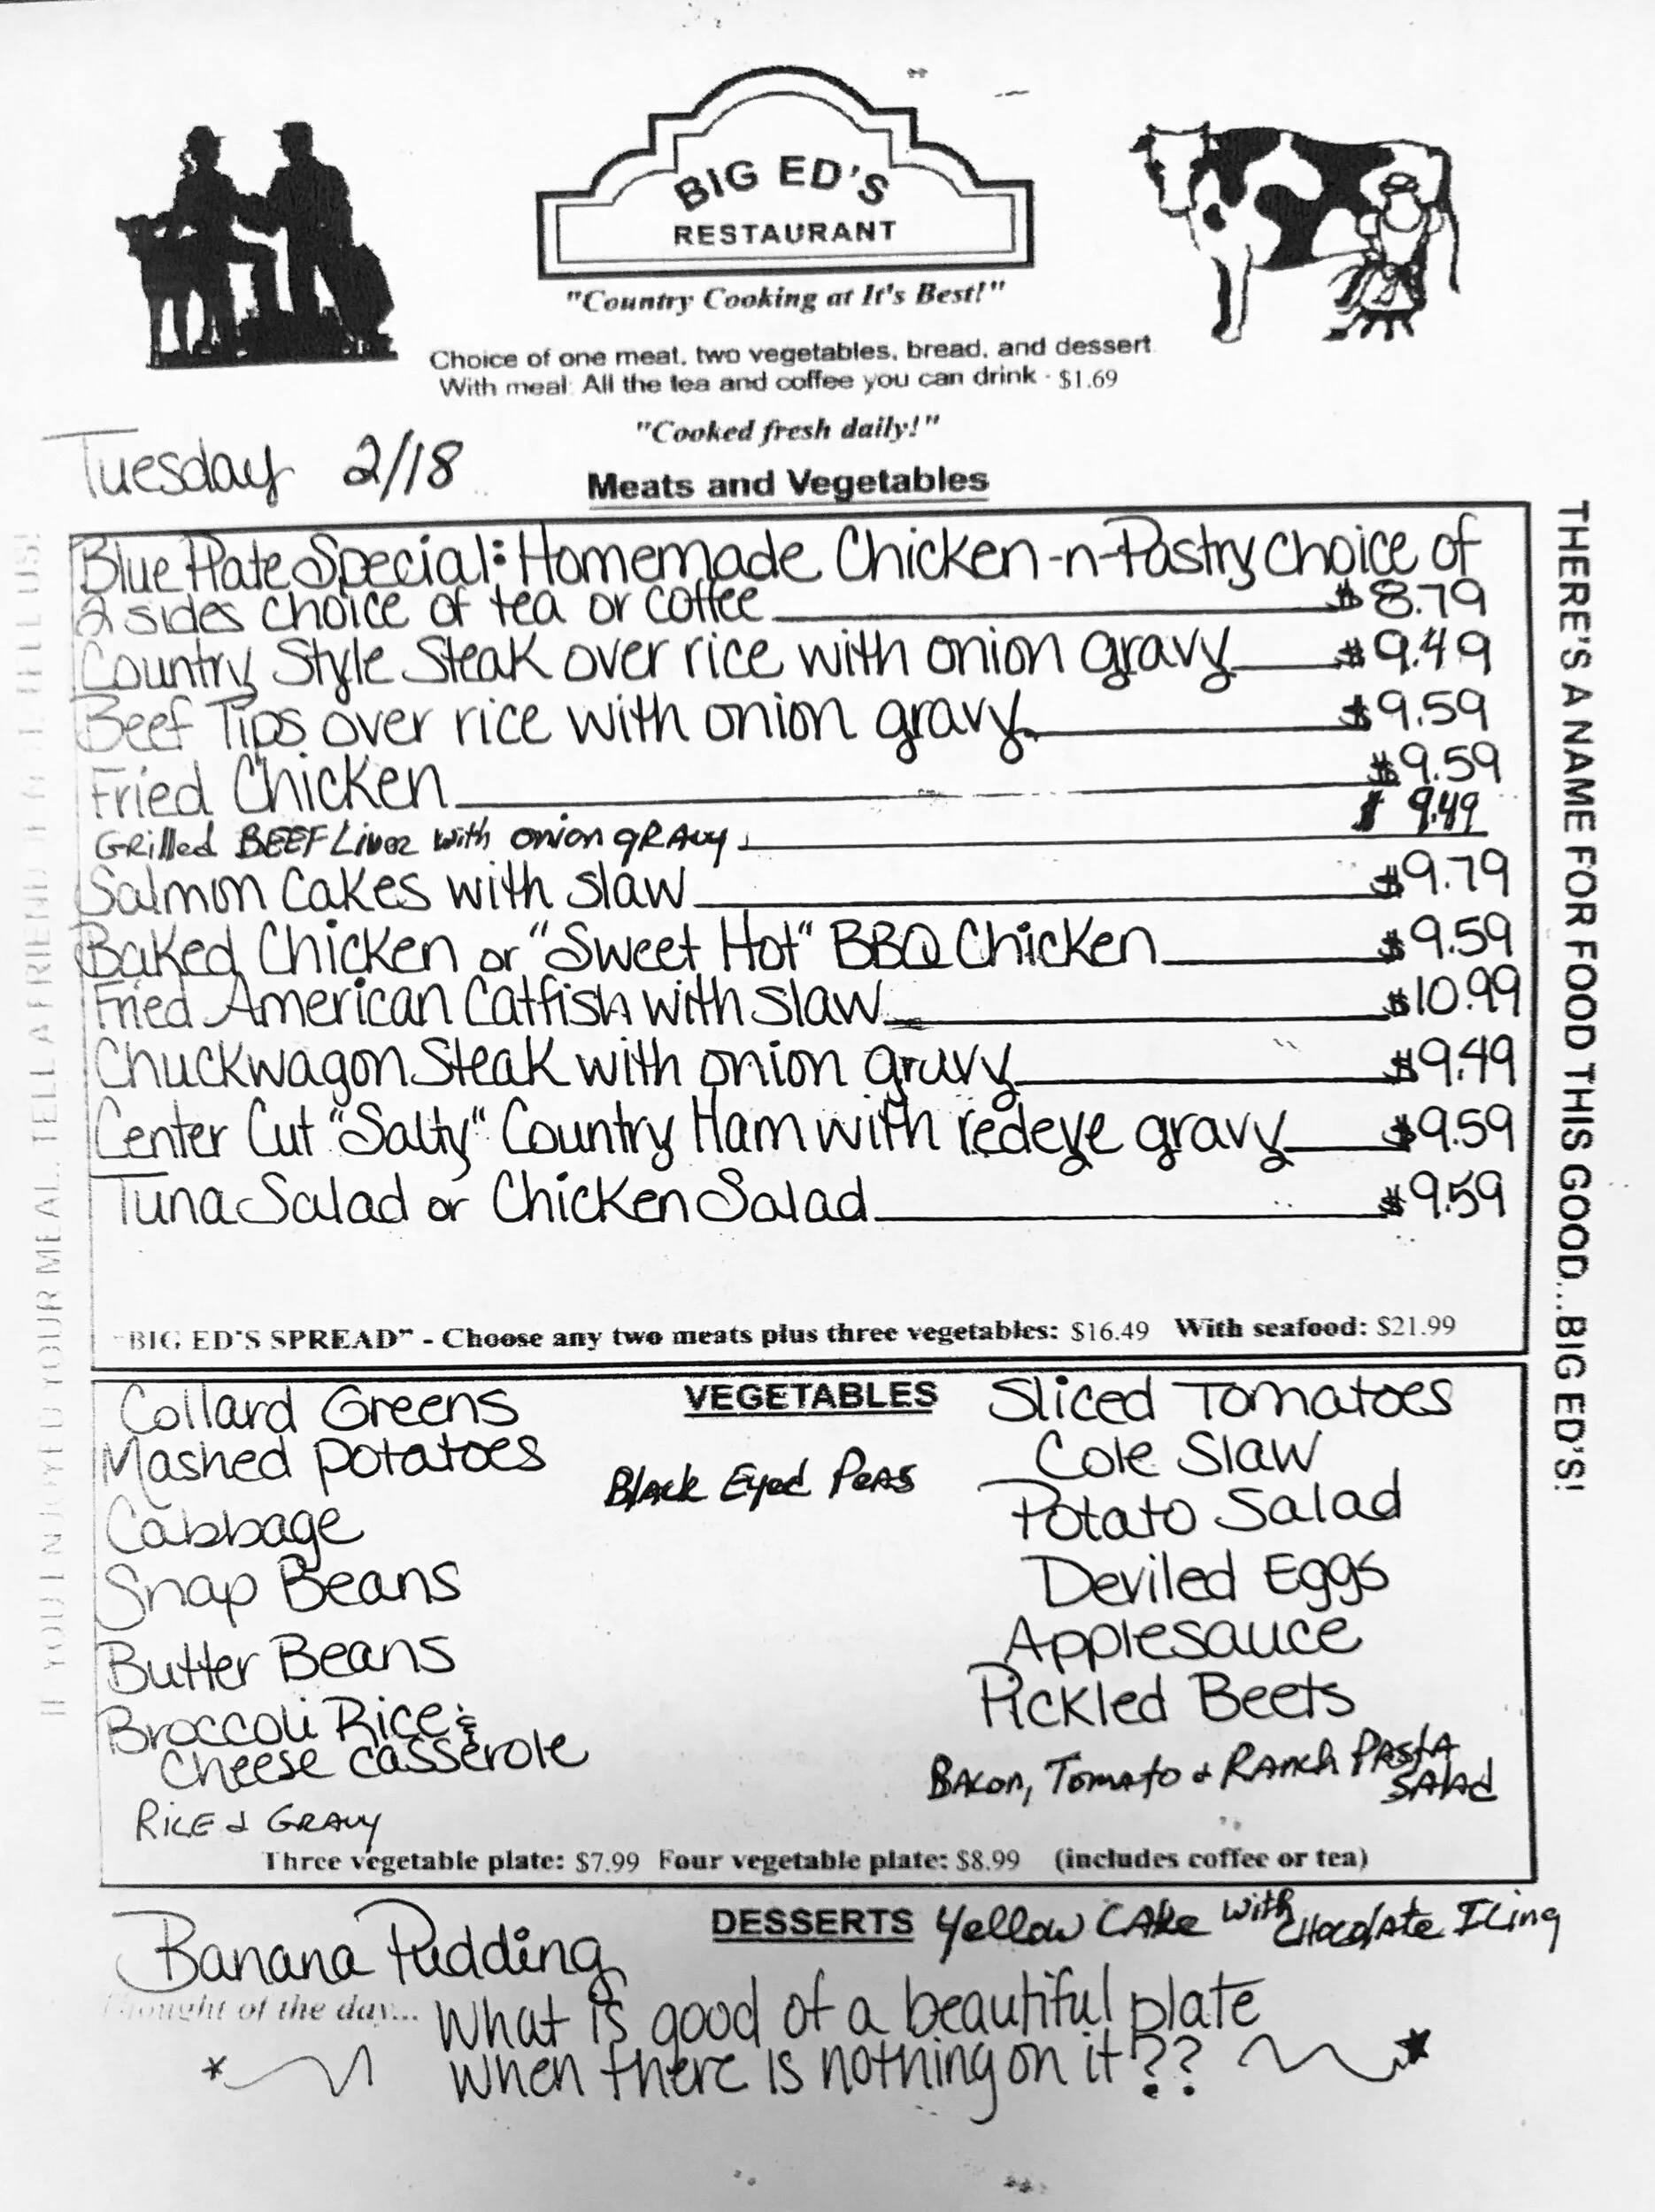 BIG ED'S
RESTAURANT
"Country Cooking at It's Best!"
Choice of one meat, two vegetables, bread, and dessert
With meal: All the tea and coffee you can drink - $1.69
"Cooked fresh daily!"
Tuesday 2/18
Meats and Vegetables
Blue Plate Special: Homemade Chicken-n-Pastry choice of
2 sides choice of tea or coffee $8.79
Country Style Steak over rice with onion gravy $9.49
Beef Tips over rice with onion gravy $9.59
Fried Chicken $9.59
Grilled BEEF Liver with onion gRAvy $9.49
Salmon Cakes with slaw $9.79
Baked Chicken or "Sweet Hot" BBQ Chicken $9.59
Fried American Catfish with slaw $10.99
Chuckwagon Steak with onion gravy $9.49
Center Cut "Salty" Country Ham with redeye gravy $9.59
Tuna Salad or Chicken Salad $9.59
"BIG ED'S SPREAD" - Choose any two meats plus three vegetables: $16.49 With seafood: $21.99
VEGETABLES
Collard Greens
Mashed Potatoes
Cabbage
Snap Beans
Butter Beans
Broccoli Rice &
Cheese Casserole
RICE & GRAVY
Black Eyed PeAs
Sliced Tomatoes
Cole Slaw
Potato Salad
Deviled Eggs
Applesauce
Pickled Beets
BAcon, Tomato & RANch PAstA
SALAd
Three vegetable plate: $7.99 Four vegetable plate: $8.99 (includes coffee or tea)
DESSERTS
Banana Pudding
Yellow CAke with Chocolate Icing
Thought of the day... What is good of a beautiful plate
when there is nothing on it??
IF YOU ENJOYED YOUR MEAL, TELL A FRIEND TELL US!
THERE'S A NAME FOR FOOD THIS GOOD...BIG ED'S!